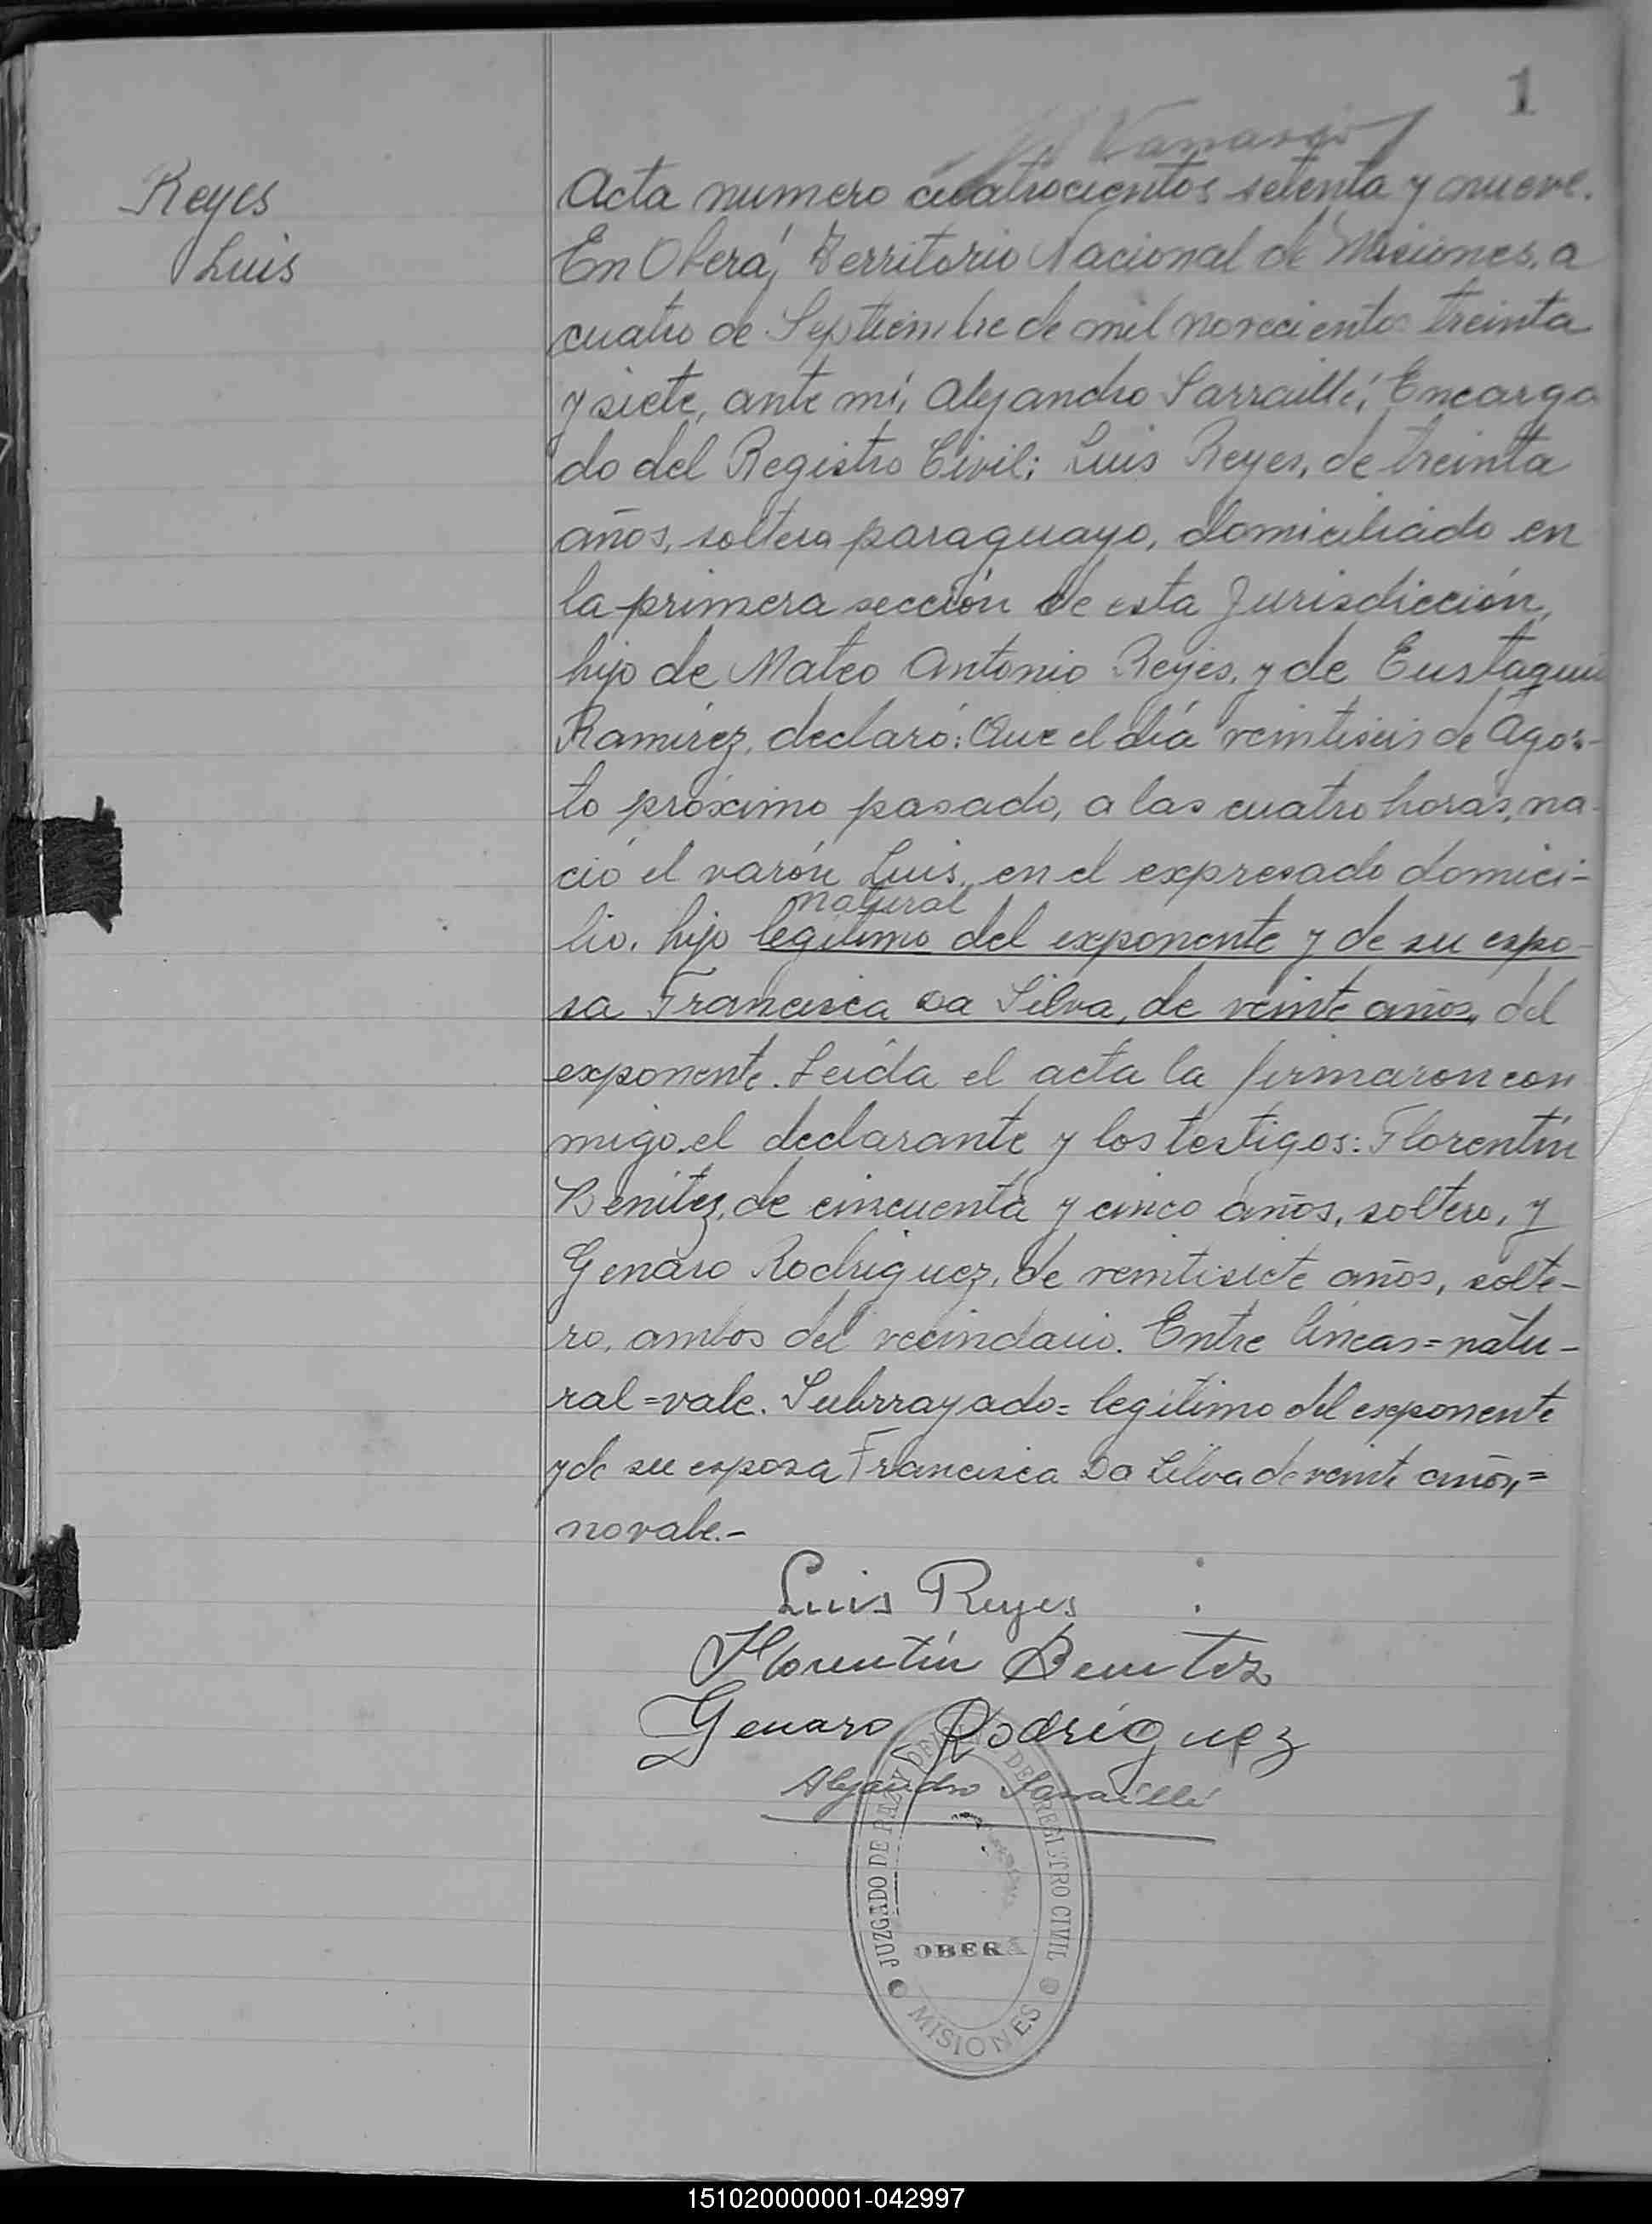 1
Reyes
Luis
Acta numero cuatrocientos setenta y nueve.
En Oberá, Territorio Nacional de Misiones, a
cuatro de Septiembre de mil novecientos treinta
y siete, ante mí, Alejandro Sarraillé, Encarga
do del Registro Civil: Luis Reyes, de treinta
años, soltero paraguayo, domiciliado en
la primera sección de esta Jurisdicción,
hijo de Mateo Antonio Reyes, y de Eustaquia
Ramírez, declaró: Que el día veintiseis de Agos-
to próximo pasado, a las cuatro horas, na-
ció el varón Luis, en el expresado domici-
natural
lio, hijo legítimo del exponente y de su espo-
sa Francisca Da Silva, de veinte años, del
exponente. Leída el acta la firmaron con
migo, el declarante y los testigos: Florentín
Benítez, de cincuenta y cinco años, soltero, y
Genaro Rodriguez, de veintisiete años, solte-
ro, ambos del vecindario. Entre líneas=natu-
ral=vale. Subrrayado= legítimo del exponente
y de su esposa Francisca Da Silva de veinte años,=
no vale.-
Luis Reyes
Florentín Benitez
Genaro Rodríguez
Alejandro Sarraillé
JUZGADO DE PAZ Y DEL REGISTRO CIVIL
OBERÁ
MISIONES
151020000001-042997